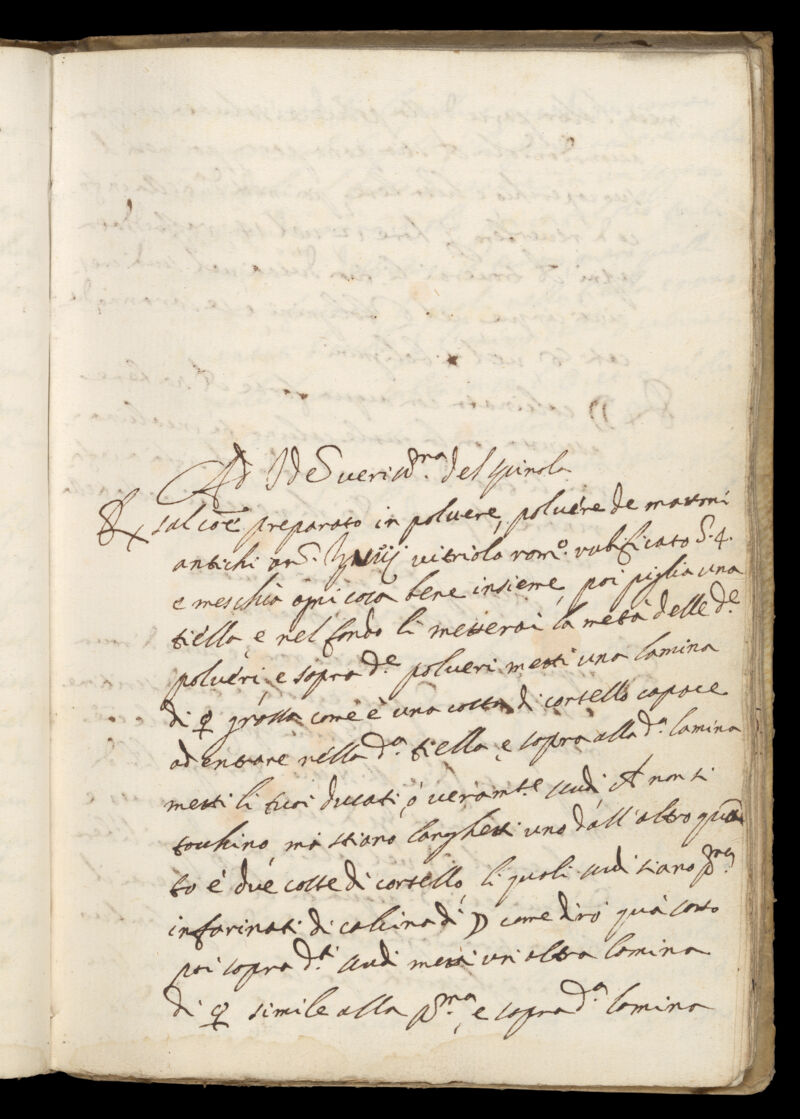 Ad Id est veri del spinola
℞ sal coe preparato in polvere, polvere de mattoni
antichi an vitriolo rom.º rubificato 4.
e meschia ogni cosa bene insieme, poi piglia una
tiella, e nel fondo li metterai la metà delle d.e
polveri, e sopra d.e polveri metti una lamina
di ♀ grossa come è una costa di cortello capace
ad entrare nella d.a tiella, e sopra alla d.a lamina
metti li tuoi ducati, ó veram.te scudi, non si
tochino, ma stiano larghetti uno dall'altro quan
to é due coste di cortello, li quali scudi siano p.a
infarinati di calcina di ☽ come dirò quà sotto
poi sopra d.ti scudi metti un altra lamina
di ♀ simile alla p.ma, e sopra d.a lamina